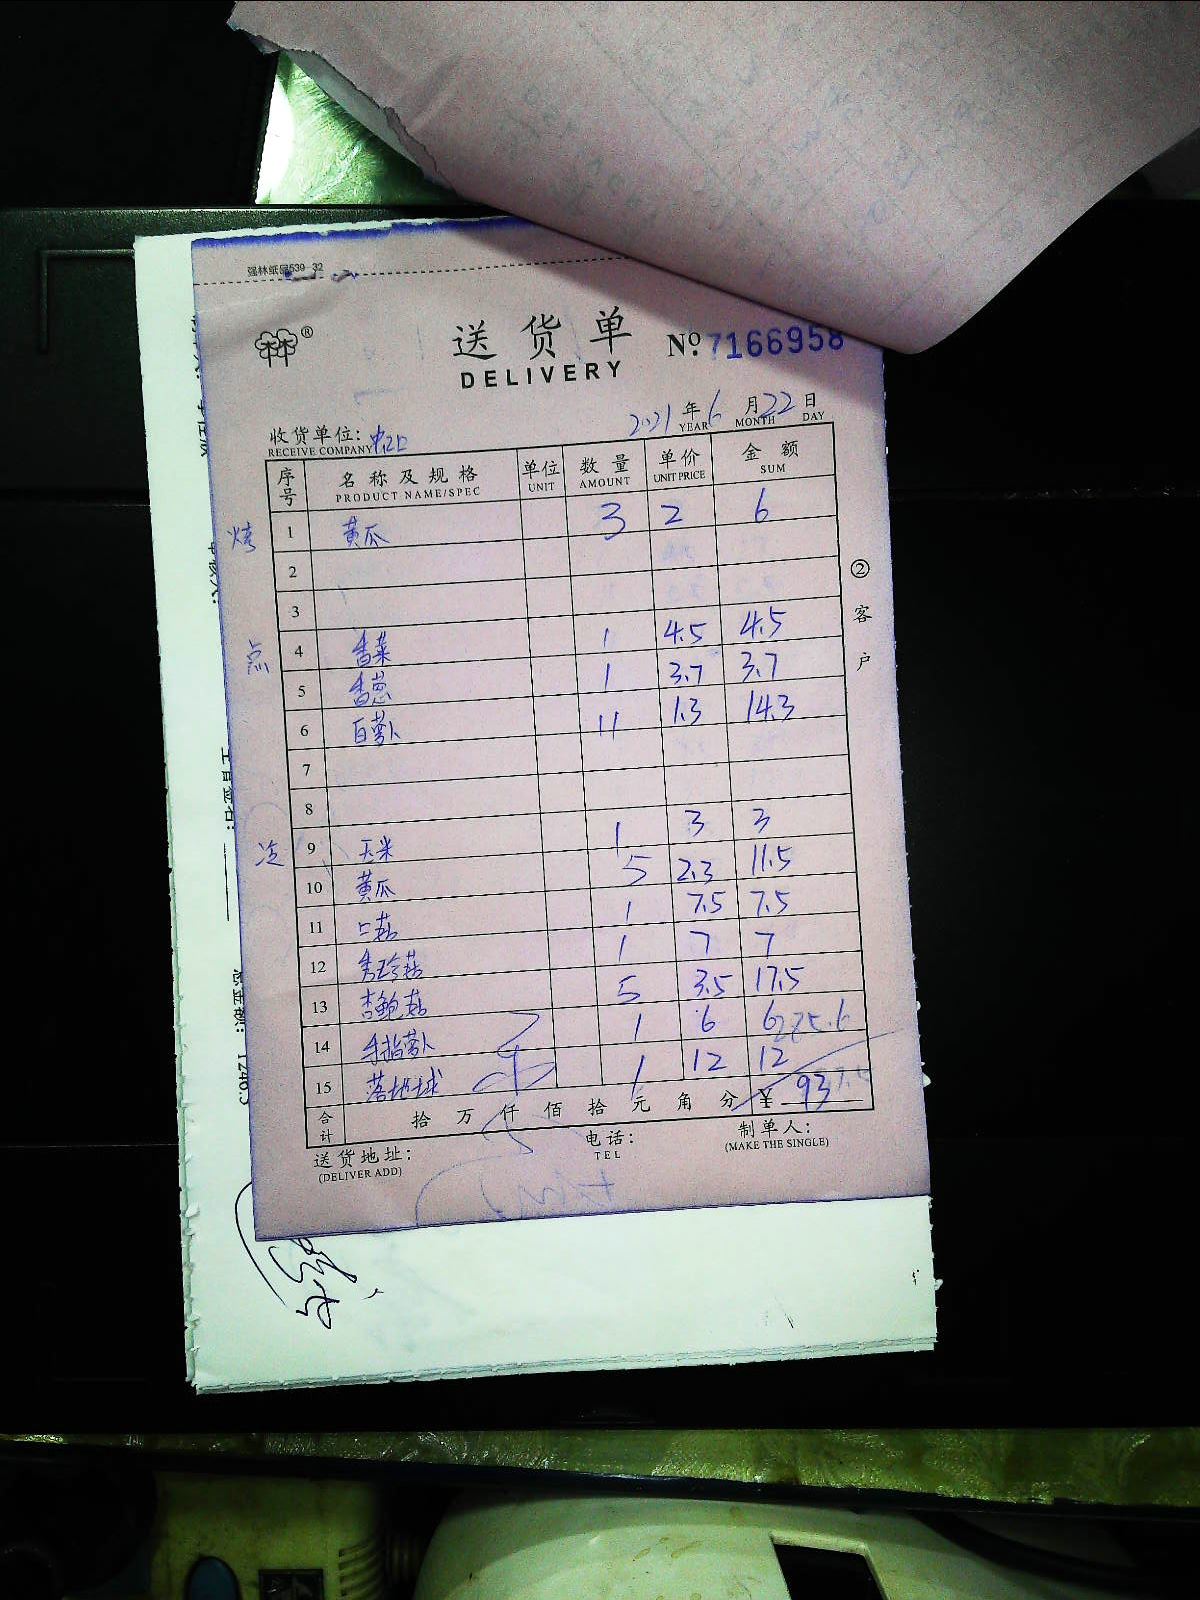 强林纸品539-32
®
送货单
DELIVERY
No. 7166958
2021年6月22日
YEAR MONTH DAY
收货单位:
RECEIVE COMPANY
序号 名称及规格 单位 数量 单价 金额
PRODUCT NAME/SPEC UNIT AMOUNT UNIT PRICE SUM
烤 1 黄瓜 3 2 6
2
3
点 4 香菜 1 4.5 4.5
5 香葱 1 3.7 3.7
6 白萝卜 11 1.3 14.3
7
8
冷 9 玉米 1 3 3
10 黄瓜 5 2.3 11.5
11 口菇 1 7.5 7.5
12 秀珍菇 1 7 7
13 杏鲍菇 5 3.5 17.5
14 手指萝卜 1 6 6
15 落地球 1 12 12
合计 拾 万 仟 佰 拾 元 角 分 ¥ 93
②客户
送货地址:
(DELIVER ADD)
电话:
TEL
制单人:
(MAKE THE SINGLE)